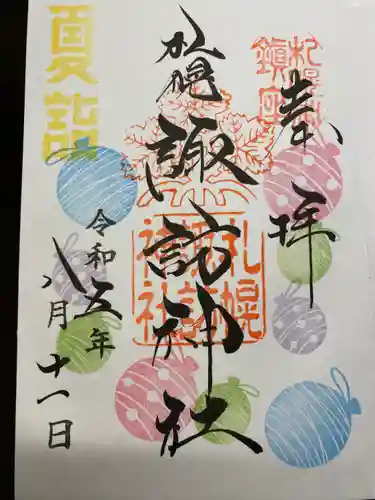 奉拝
札幌鎮座
札幌
諏訪神社
札幌諏訪神社
夏詣
令和五年
八月十一日